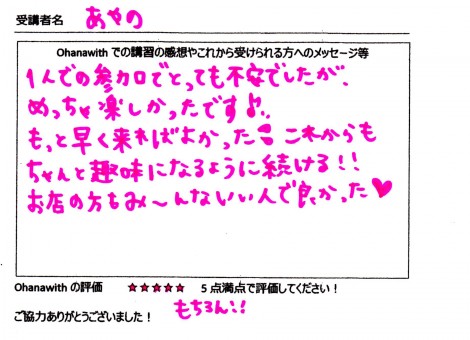 受講者名 あやの
Ohanawith での講習の感想やこれから受けられる方へのメッセージ等
1人での参加でとっても不安でしたが、
めっちゃ楽しかったですよ♪
もっと早く来ればよかった!これからも
ちゃんと趣味になるように続ける!!
お店の方もみ〜んないい人で良かった♥
Ohanawith の評価 ★★★★★ 5 点満点で評価してください!
もちろん!!
ご協力ありがとうございました!